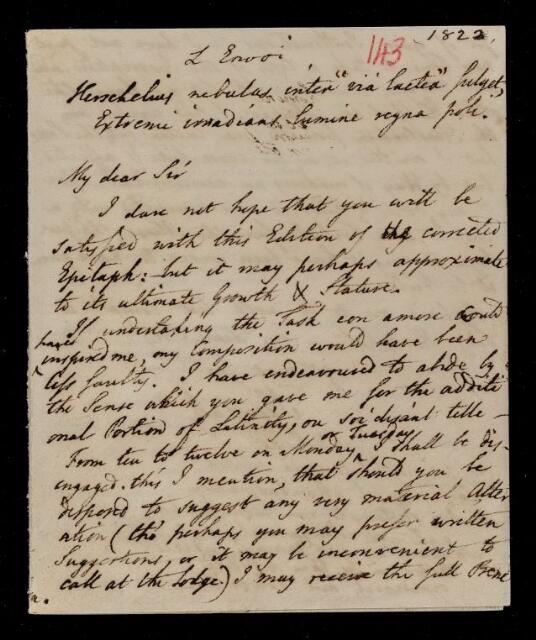 1822.
143
L Envoi
Herschelius nebulas inter "via lactea" fulget,
Extremi irradians lumine regna poli.
My dear Sir
I dare not hope that you will be
satisfied with this Edition of the corrected
Epitaph: but it may perhaps approximate
to its ultimate Growth & Stature.
If undertaking the Task con amore could
have
inspired me, my Composition would have been
less faulty. I have endeavoured to abide by
the Sense which you gave me for the additi
onal Portion of Latinity, ou soi disant telle –
or Tuesday
From ten to twelve on Monday I shall be dis-
engaged. this I mention, that should you be
disposed to suggest any very material Alter
ation (tho' perhaps you may prefer written
Suggestions, or it may be inconvenient to
call at the Lodge) I may receive the full Bene